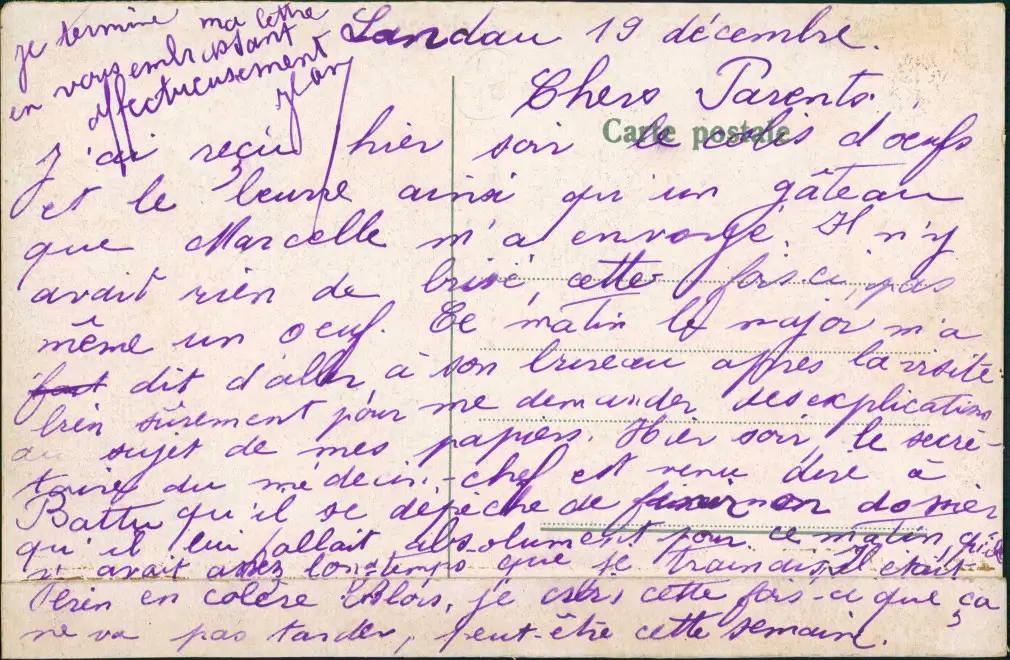 Landau 19 décembre.
Chers Parents,
Carte postale
J'ai reçu hier soir le colis d'œufs
et le beurre ainsi qu'un gâteau
que Marcelle m'a envoyé. Il n'y
avait rien de brisé, cette fois ci, pas
même un œuf. Ce matin le major m'a
dit d'aller à son bureau après la visite
bien sûrement pour me demander des explications
au sujet de mes papiers. Hier soir, le secré-
taire du médecin-chef est venu dire à
Battu qu'il se dépêche de finir mon dossier
qu'il lui fallait absolument pour ce matin, qu'il
n'avait assez longtemps que je traindis, Il était
en colère je crois, cette fois-ci que ça
ne va pas tarder, peut-être cette semaine.
je termine ma lettre
en vous embrassant
affectueusement